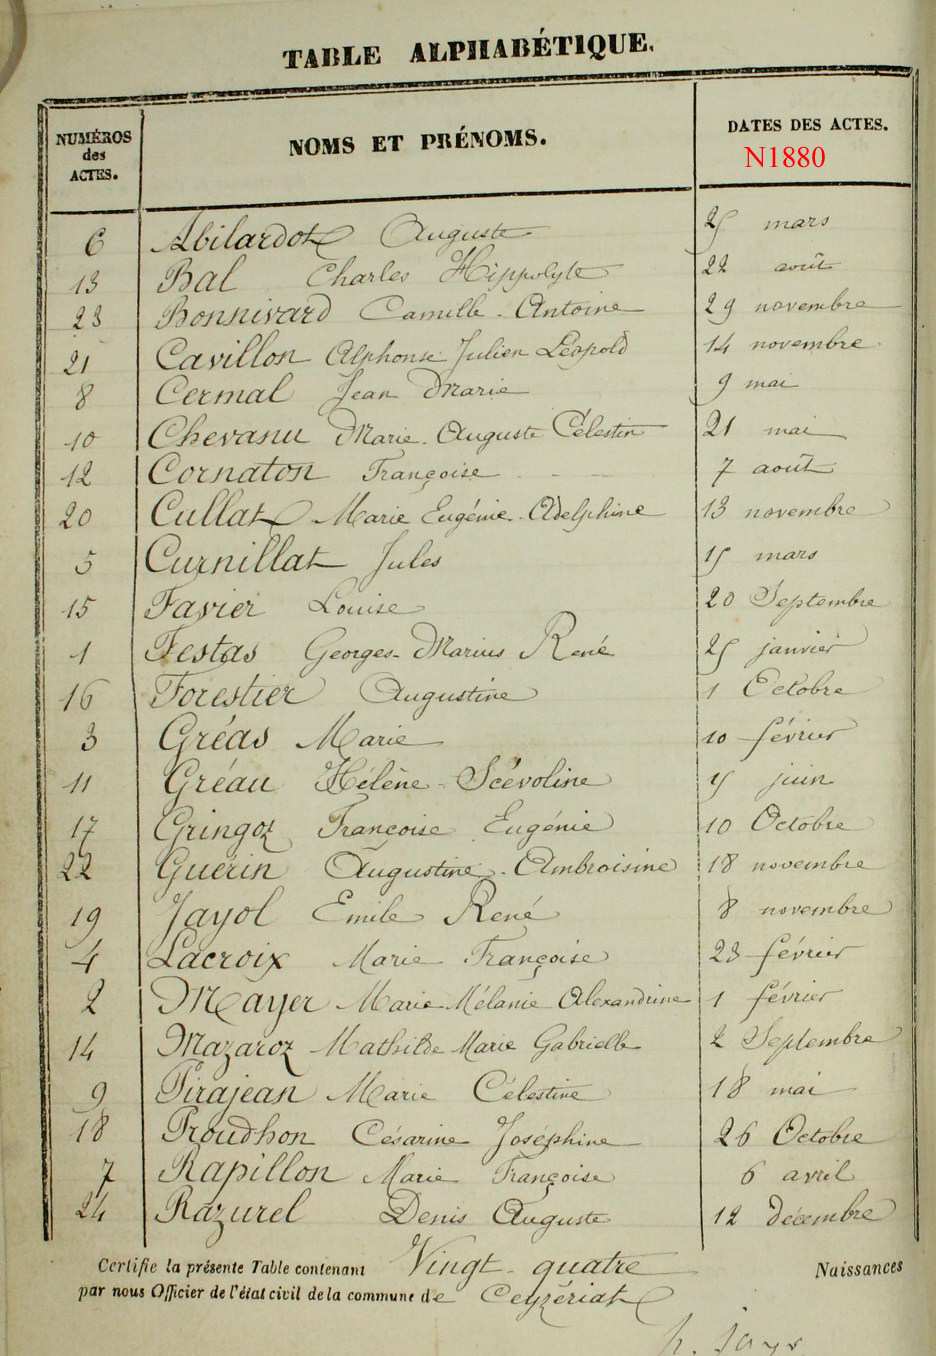 TABLE ALPHABÉTIQUE.
NUMÉROS des ACTES. NOMS ET PRÉNOMS. DATES DES ACTES.
N1880
6 Abilardot Auguste 25 mars
13 Bal Charles Hippolyte 22 août
23 Bonnivard Camille - Antoine 29 novembre
21 Cavillon Alphonse Julien Léopold 14 novembre
8 Cermal Jean Marie 9 mai
10 Chevanu Marie - Auguste Célestin 21 mai
12 Cornaton Françoise 7 août
20 Cullat Marie Eugénie - Adelphine 13 novembre
5 Curnillat Jules 15 mars
15 Favier Louise 20 Septembre
1 Festas Georges - Marius René 25 janvier
16 Forestier Augustine 1 Octobre
3 Gréas Marie 10 février
11 Gréau Hélène - Scévoline 5 juin
17 Gringoz Françoise Eugénie 10 Octobre
22 Guérin Augustine - Ambroisine 18 novembre
19 Jayol Emile René 8 novembre
4 Lacroix Marie Françoise 23 février
2 Mayer Marie - Mélanie Alexandrine 1 février
14 Mazaroz Mathilde Marie Gabrielle 2 Septembre
9 Pirajean Marie Célestine 18 mai
18 Proudhon Césarine Joséphine 26 Octobre
7 Rapillon Marie Françoise 6 avril
24 Razurel Denis Auguste 12 décembre
Certifie la présente Table contenant Vingt - quatre Naissances
par nous Officier de l'état civil de la commune de Ceyzériat